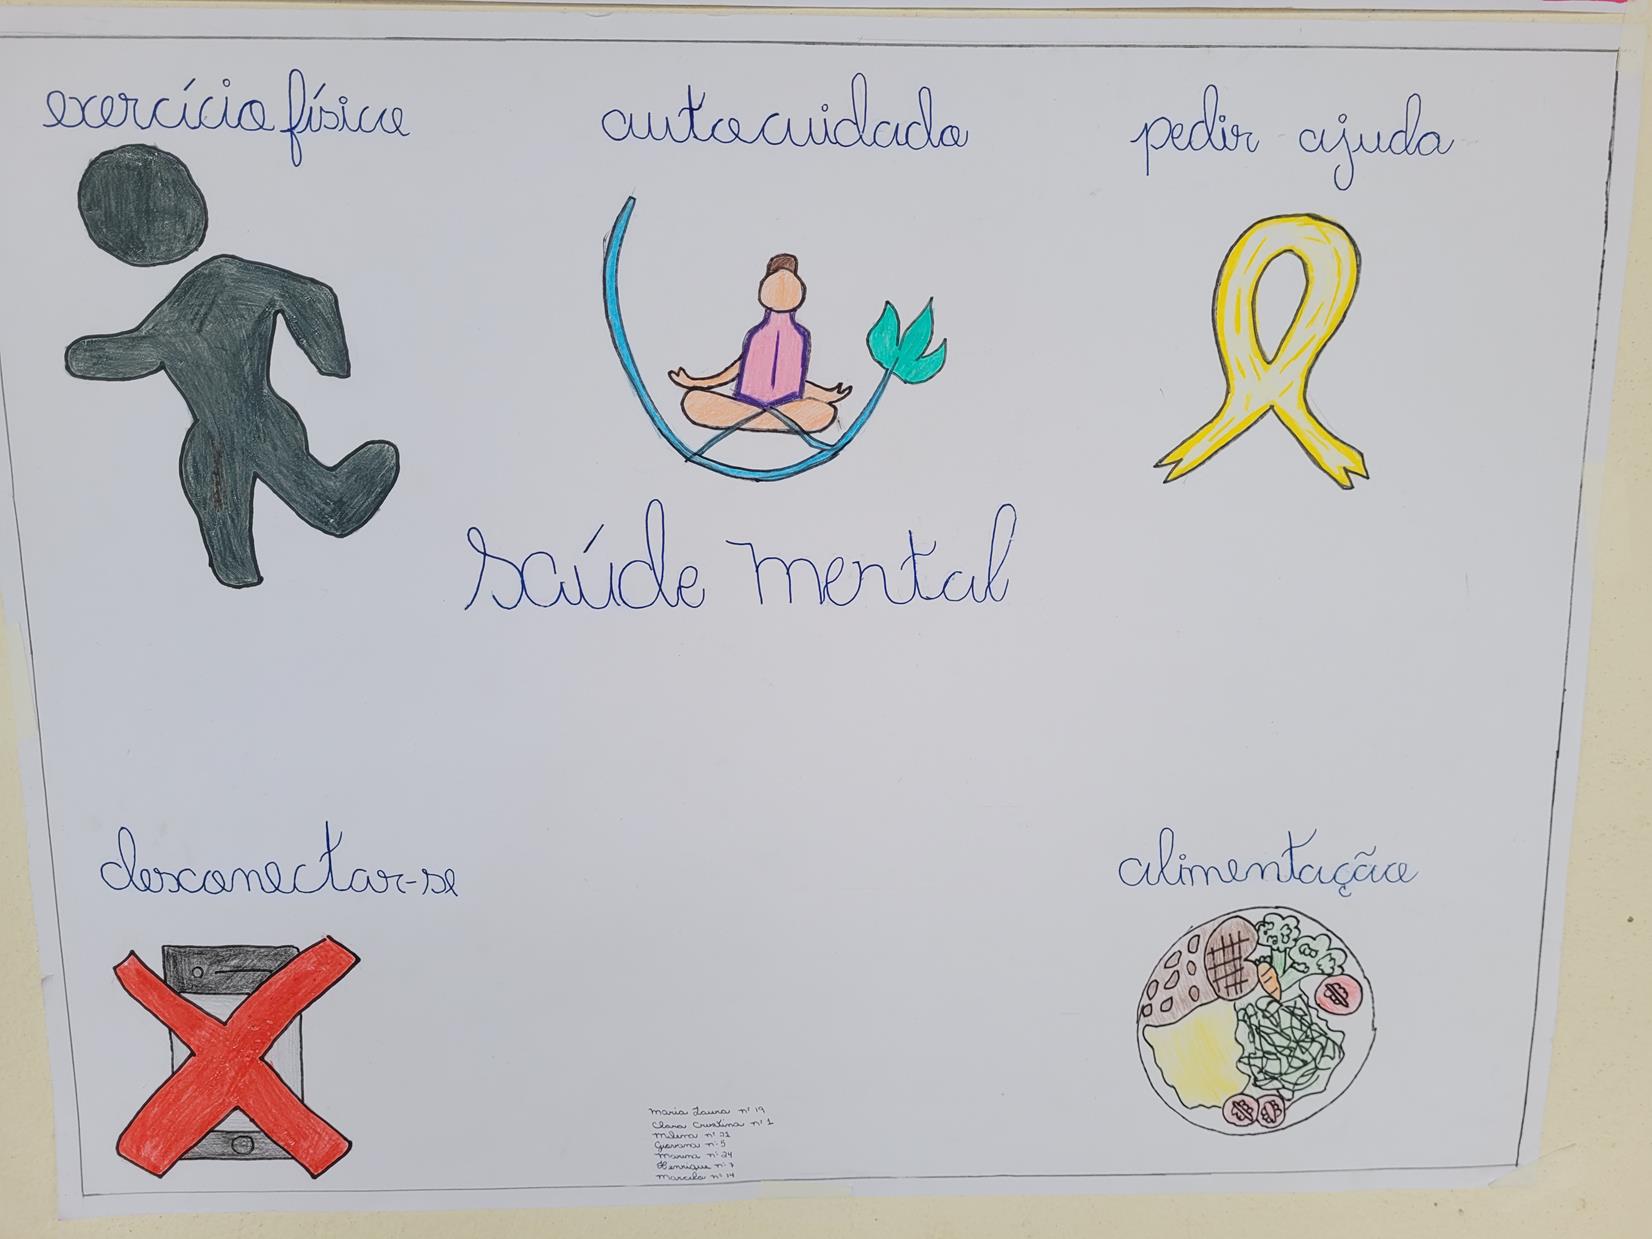 exercício físico
autocuidado
pedir ajuda
saúde mental
desconectar-se
alimentação
Maria Laura nº 19
Clara Cristina nº 1
Milena nº 21
Giovana nº 5
Marina nº 24
Henrique nº 7
Marcela nº 14